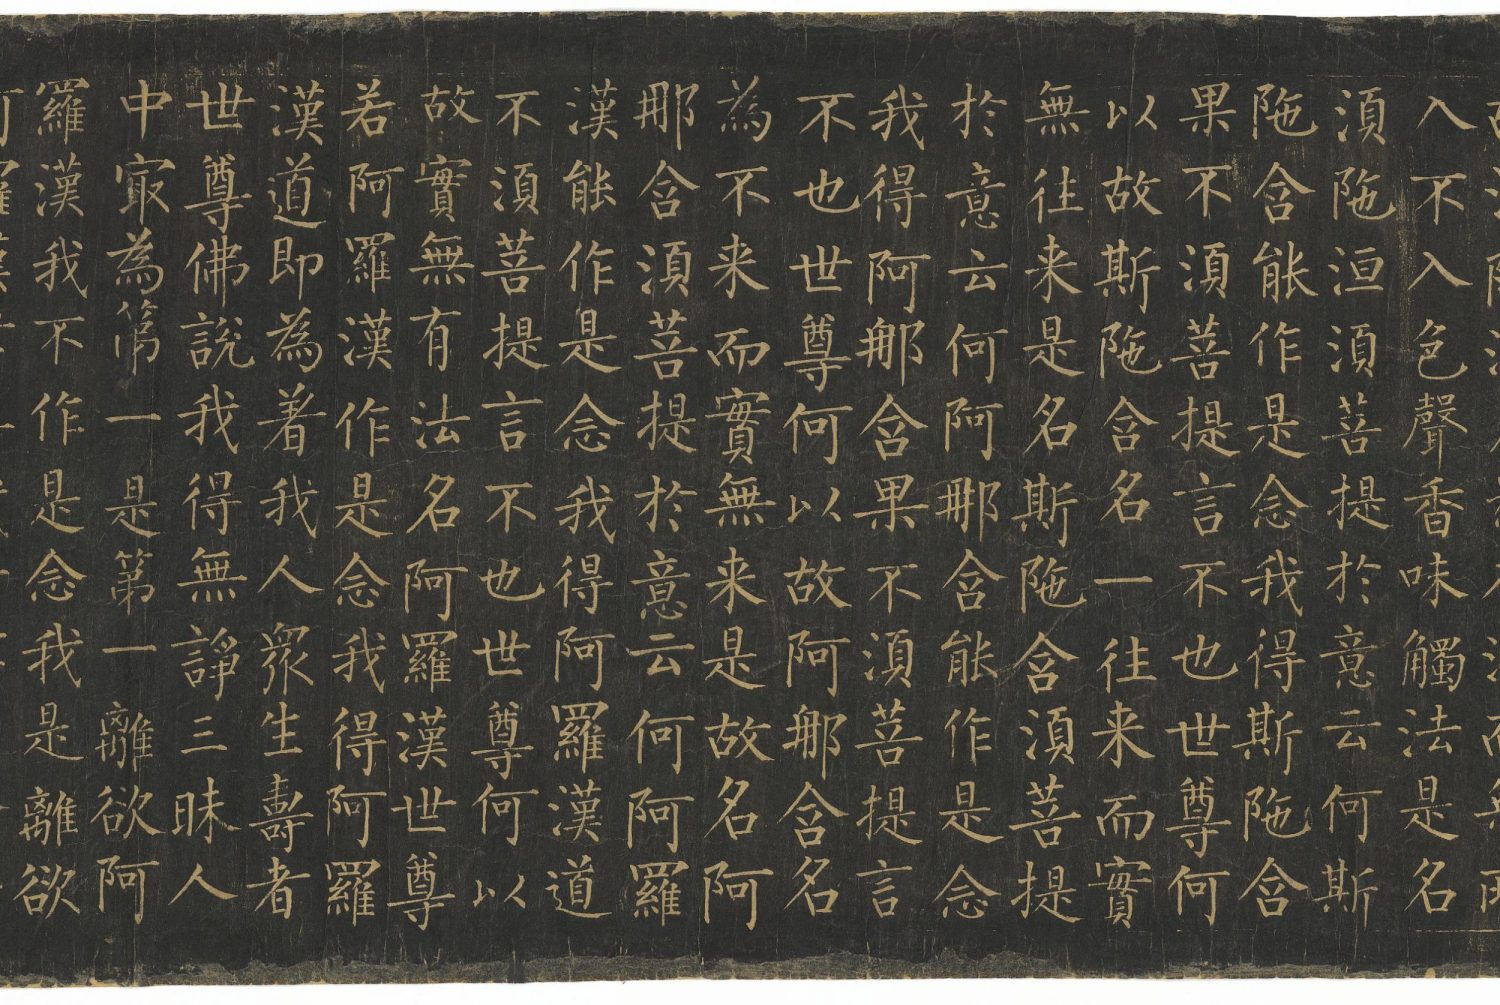 入不入色聲香味觸法是名
湏陁洹湏菩提於意云何斯
陁含能作是念我得斯陁含
果不湏菩提言不也世尊何
以故斯陁含名一往来而實
無往来是名斯陁含湏菩提
於意云何阿那含能作是念
我得阿那含果不湏菩提言
不也世尊何以故阿那含名
為不来而實無来是故名阿
那含湏菩提於意云何阿羅
漢能作是念我得阿羅漢道
不湏菩提言不也世尊何以
故實無有法名阿羅漢世尊
若阿羅漢作是念我得阿羅
漢道即為著我人眾生壽者
世尊佛說我得無諍三昧人
中㝡為第一是第一離欲阿
羅漢我不作是念我是離欲